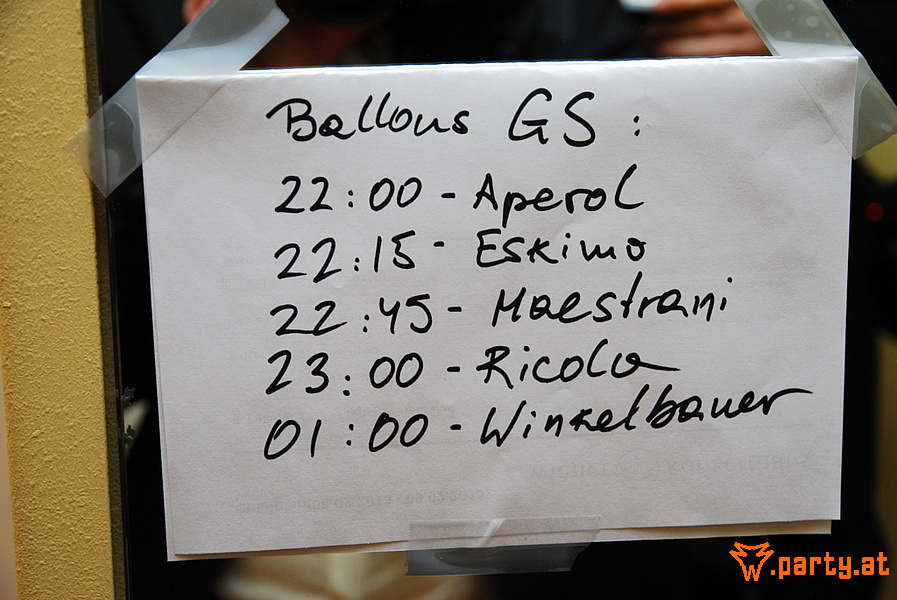 Ballons GS :
22:00 - Aperol
22:15 - Eskimo
22:45 - Maestrani
23:00 - Ricola
01:00 - Winkelbauer
.party.at